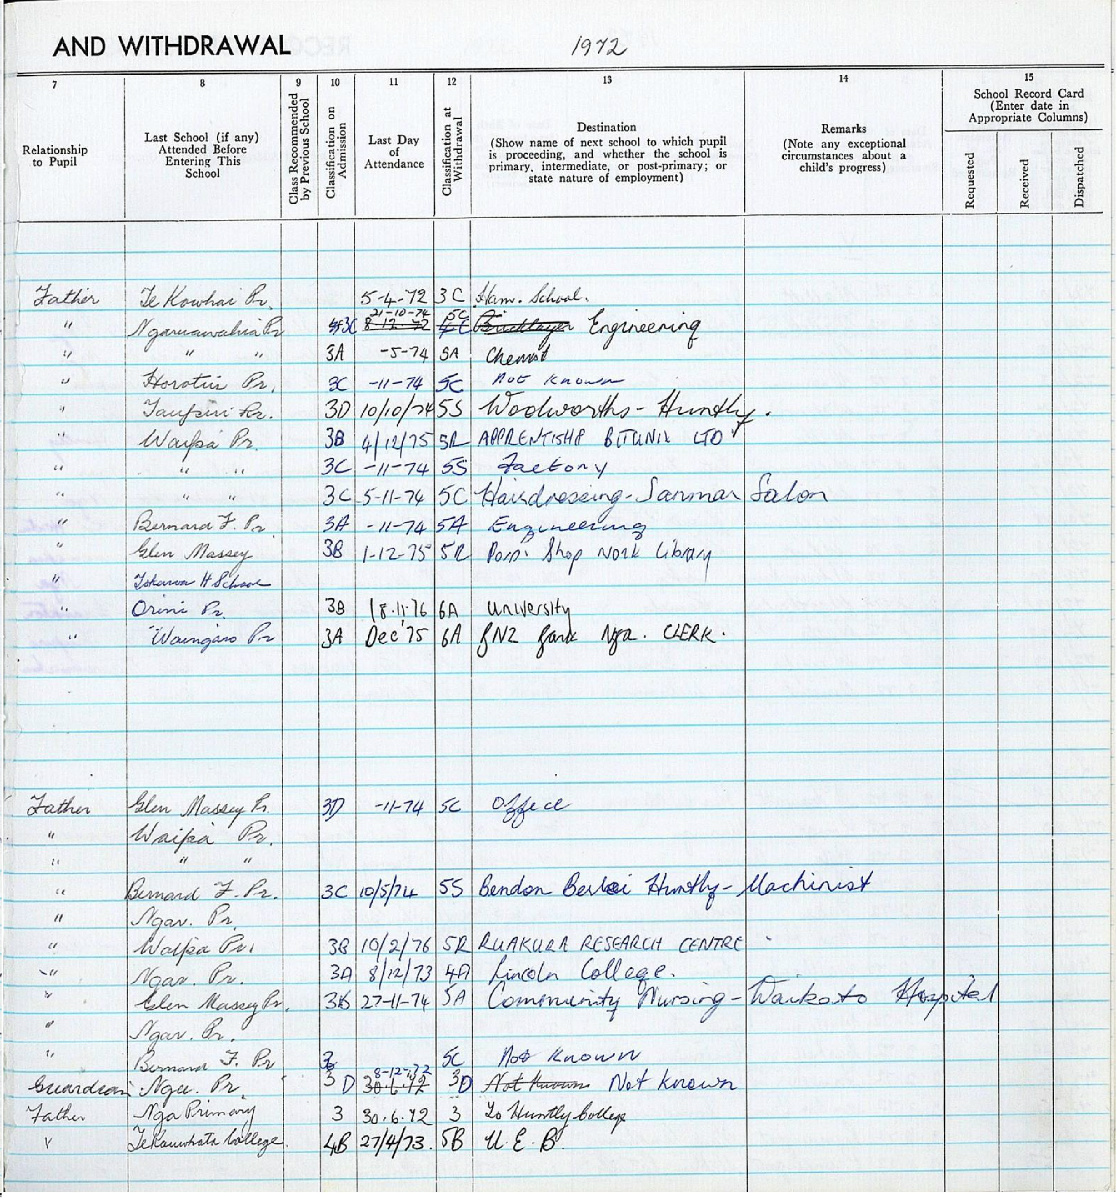 AND WITHDRAWAL 1972
7 8 9 10 11 12 13 14 15
Relationship to Pupil
Last School (if any) Attended Before Entering This School
Class Recommended by Previous School
Classification on Admission
Last Day of Attendance
Classification at Withdrawal
Destination
(Show name of next school to which pupil is proceeding, and whether the school is primary, intermediate, or post-primary; or state nature of employment)
Remarks
(Note any exceptional circumstances about a child's progress)
School Record Card
(Enter date in Appropriate Columns)
Requested
Received
Dispatched
Father Te Kowhai Pr. 5-4-72 3C Ham. School.
" Ngaruawahia Pr 3C 21-10-74 8-12-72 5C Bricklayer Engineering
" " " 3A -5-74 5A Chemist
" Horotiu Pr. 3C -11-74 5C Not known
" Taupiri Pr. 3D 10/10/74 5S Woolworths - Huntly.
" Waipa Pr. 3B 4/12/75 5R APPRENTISHP BITUNIX LTD
" " " 3C -11-74 5S Factory
" " " 3C 5-11-74 5C Hairdressing - Sanmar Salon
" Bernard F. Pr. 3A -11-74 5A Engineering
" Glen Massey 3B 1-12-75 5R Poss: Shop Work Library
" H School
" Orini Pr. 3B 18.11.76 6A University
" Waingaro Pr 3A Dec '75 6A BNZ Bank Nga. CLERK.
Father Glen Massey Pr. 3D -11-74 5C Office
" Waipa Pr.
" " "
" Bernard F. Pr. 3C 10/5/74 5S Bendon Berlei Huntly - Machinist
" Ngar. Pr.
" Waipa Pr. 3B 10/2/76 5R RUAKURA RESEARCH CENTRE
" Ngar. Pr. 3A 8/12/73 4A Lincoln College.
" Glen Massey Pr. 3B 27-11-74 5A Community Nursing - Waikato Hospital
" Ngar. Pr.
" Bernard F. Pr 3 5C Not known
Guardian Nga. Pr. 3D 8-12-72 30.6.72 3D Not known Not known
Father Nga Primary 3 30.6.72 3 To Huntly College
" Te Kauwhata College. 4B 27/4/73. 5B U.E.B.